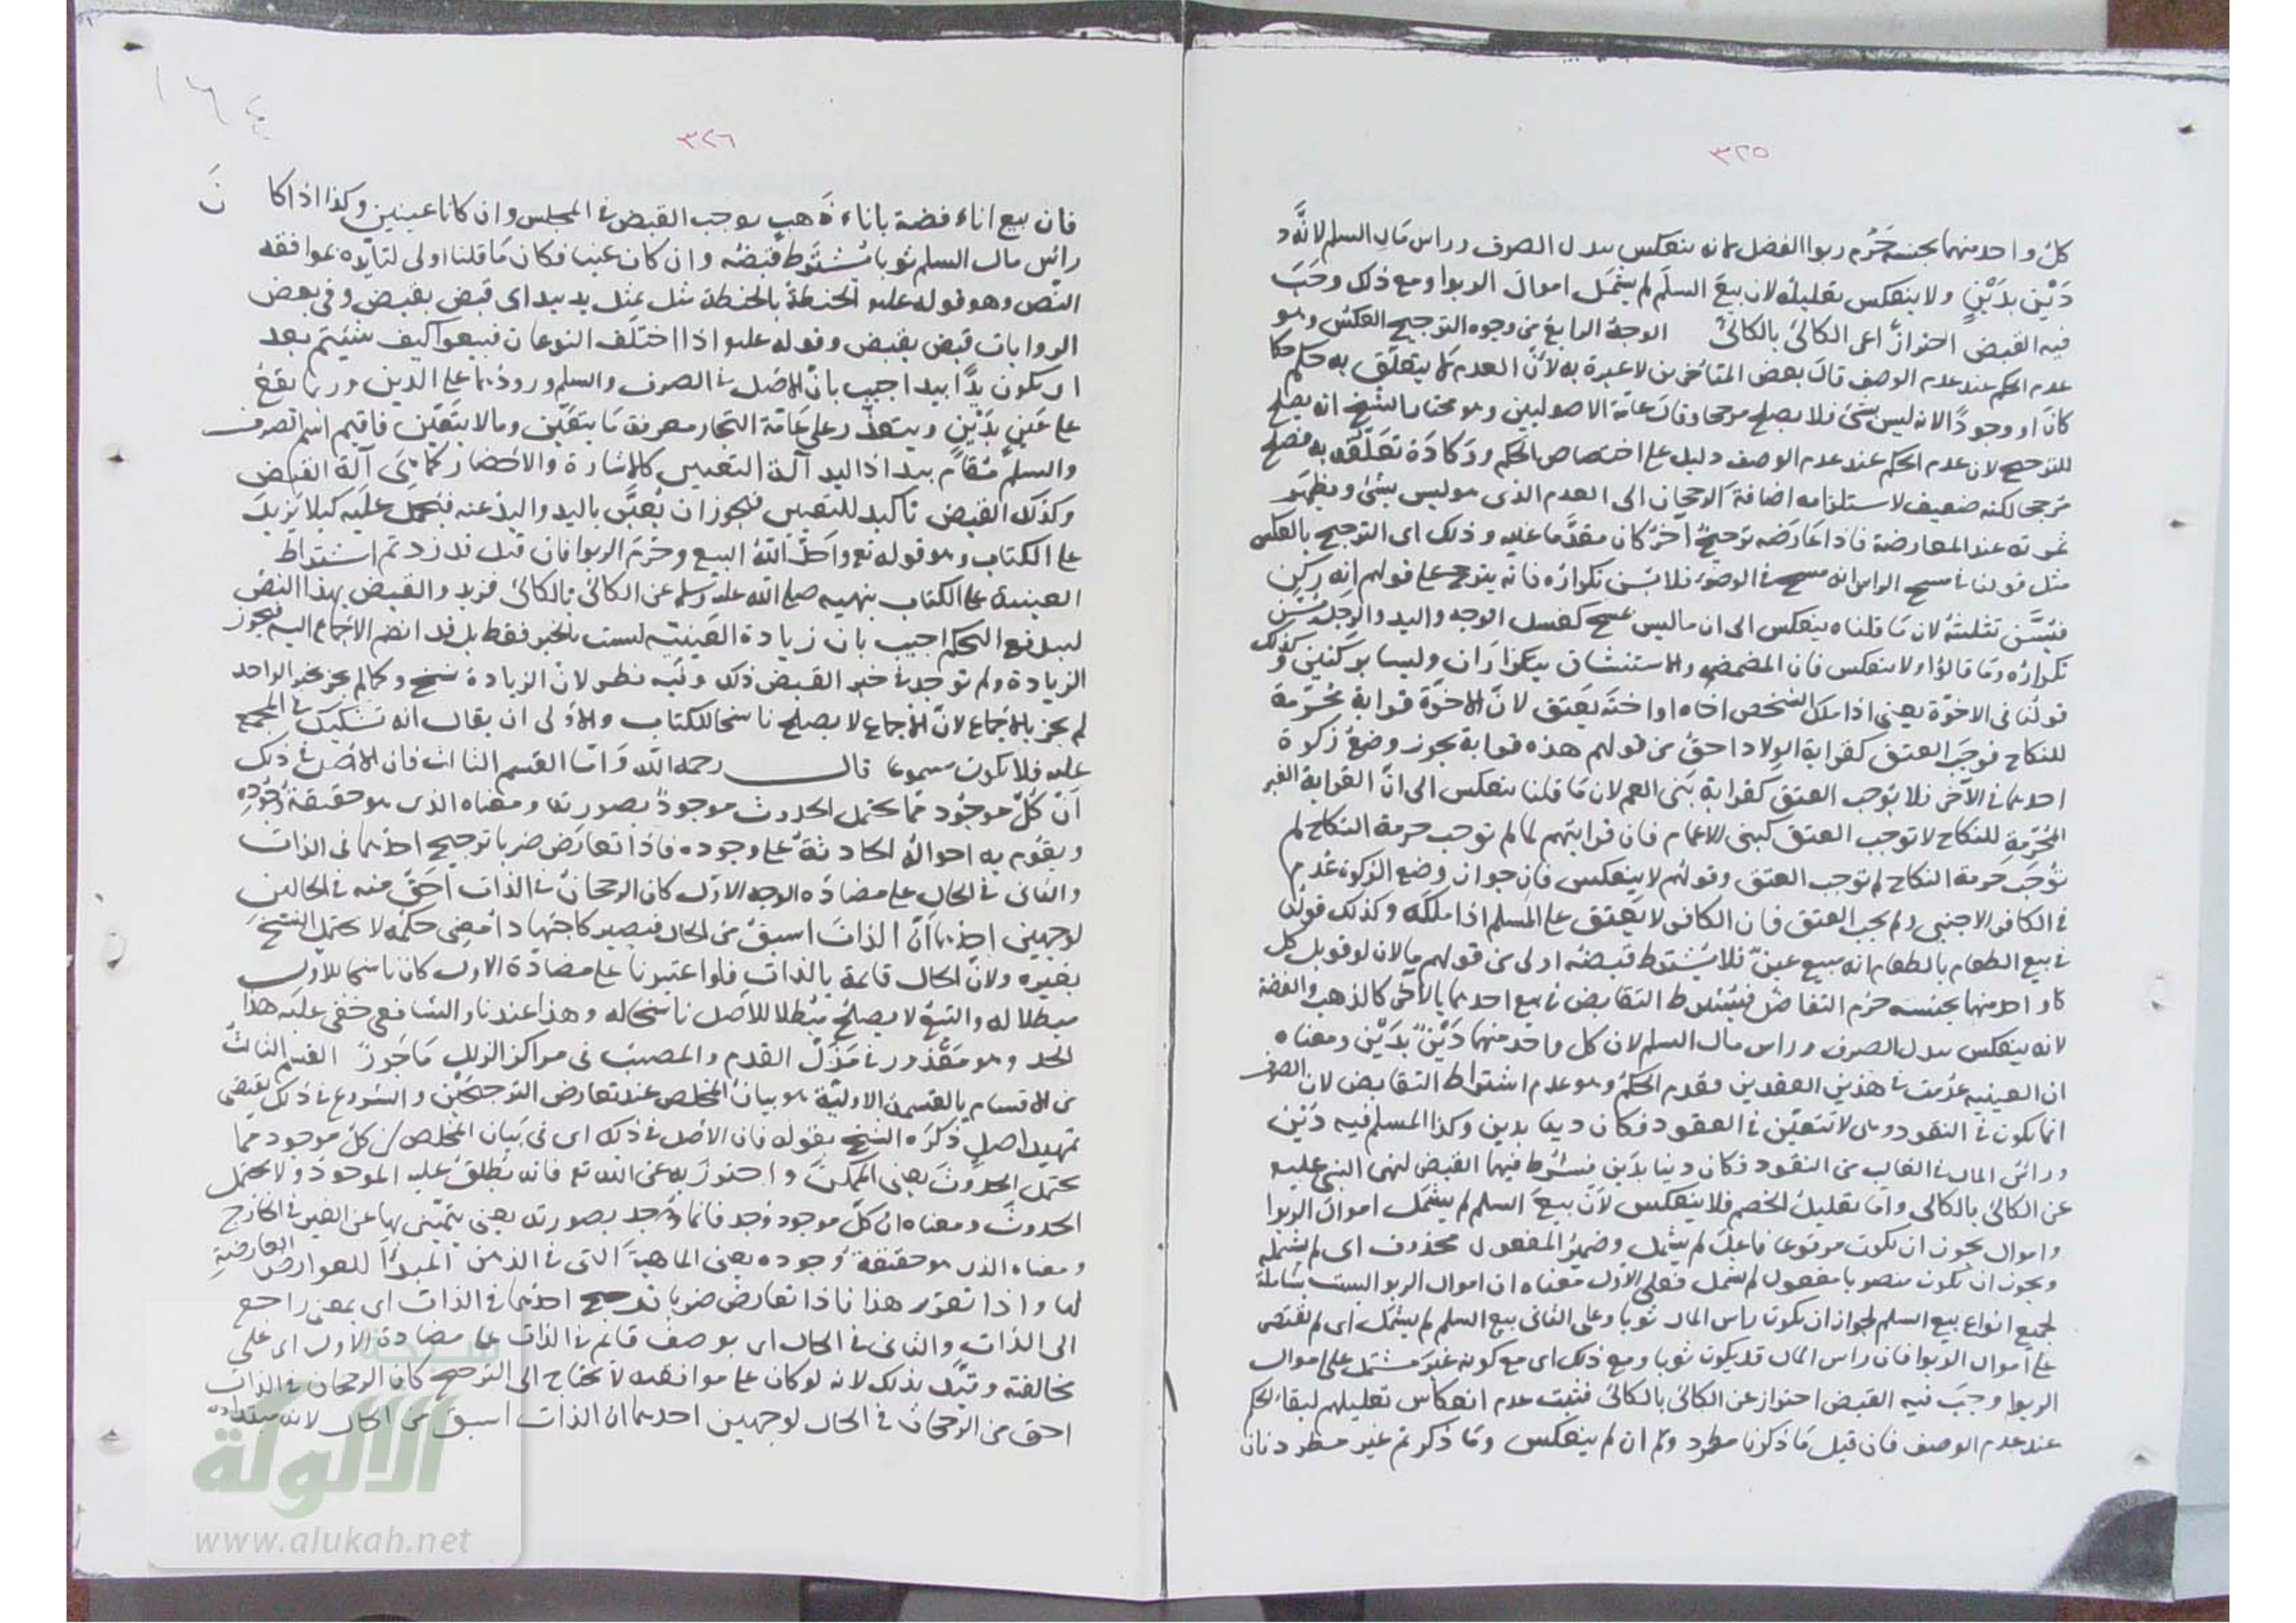 ٣٢٥
كل واحد منهما بجنسه حَرُم ربوا الفضل لانه ينعكس ببدل الصرف وراس مال السلم لانَّه
دَيْن بدَيْنٍ ولا ينعكس تعليله لان بيعَ السلَم لم يشمل اموالَ الربوا ومع ذلك وجَبَ
فيه القبض احترازٌ اعى الكالئ بالكالئ الوجهُ الرابع من وجوه الترجيح العكسُ وهو
عدم الحكم عند عدم الوصف قال بعض المتأخرين لا عبرة به لأنَّ العدم لا يتعلَّق به حكم
كان او وجودًا لانه ليس بشئ فلا يصلح مرجحا وقال عامّة الاصوليين وهو مختار الشيخ انه يصلح
للترجيح لان عدم الحكم عند عدم الوصف دليل على اختصاص الحكم ووكادة تعلّقه به فصلح
مرجحا لكنه ضعيف لاستلزامه اضافةَ الرجحان الى العدم الذى هو ليس بشئ ويظهر
ثمرته عند المعارضة فاذا عارَضَه ترجيحٌ آخر كان مقدَّما عليه وذلك اى الترجيح بالعكس
مثل قولنا فى مسح الراس انه مسح فى الوضوء فلا يُسَن تكراره فانه يترجح على قولهم انه ركن
فيُسَنّ تثليثه لان ما قلناه ينعكس الى ان ما ليس بمسح كغسل الوجه واليد والرجل يُسَنّ
تكراره وما قالوا ولا ينعكس فان المضمضة والاستنشاق يتكرّران وليسا بركنين وكذلك
قولُنا فى الاخوّة يعنى اذا ملك الشخص اخاه او اختَه يعتق لانّ الاخوّة قرابة مُحَرِّمة
للنكاح فوجَبَ العتق كقرابة الولاد احقُّ من قولهم هذه قرابة يجوز وضعُ زكوة
احدهما فى الآخر فلا يُوجب العتق كقرابة بَنى العم لان مَا قلنا ينعكس الى انّ القرابة الغير
المُحَرِّمة للنكاح لا توجب العتق كبنى الاعمام فان قرابتهم لما لم توجب حرمة النكاح لم
توجب حرمة النكاح لم توجب العتق وقولهم لا ينعكس فان جواز وضع الزكوة عُدم
فى الكافر الاجنبى ولم يجب العتق فان الكافر لا يعتق على المسلم اذا ملكه وكذلك قولُنا
فى بيع الطعام بالطعام انه مبيع عينٌ فلا يُشترط قبضه اولى من قولهم مالان لو قوبل كل
واحد منهما بجنسه حرم التفاضل فيُشترط التقابض فى بيع احدهما بالآخر كالذهب والفضة
لانه ينعكس ببدل الصرف وراس مال السلم لان كل واحد منهما دَيْنٌ بدَيْن ومعناه
ان العينيه عدمت فى هذين العقدين فعُدم الحكم وهو عدم اشتراط التقابض لان الصرف
انما يكون فى النقود وهى لا تتعيّن فى العقود فكان دينا بدين وكذا المسلم فيه دَيْن
ورأس المال فى الغالب من النقود فكان دينا بدَين فيُشرط فيهما القبض لنهى النبى عليه
عن الكالئ بالكالئ وامّا تعليلُ الخصم فلا ينعكس لانّ بيعَ السلم لم يشمل اموالَ الربوا
واموال يجوز ان يكون مرفوعا فاعلَ لم يشمل وضميرُ المفعول محذوف اى لم يشمله
ويجوز ان يكون منصوبا مفعول لم يشمل فعلى الاول معناه ان اموال الربوا ليست بشاملة
لجميع انواع بيع السلم لجواز ان يكون راس المال ثوبا وعلى الثانى بيع السلم لم يشمل اى لم يقتصر
على اموال الربوا فان راس المال قد يكون ثوبا ومع ذلك اى مع كونه غيرَ مشتمل على اموال
الربوا وجَبَ فيه القبض احتراز عن الكالئ بالكالئ فثبت عدم انعكاس تعليلهم لبقاء الحكم
عند عدم الوصف فان قيل مَا ذكرنا مطرد وان لم ينعكس ومَا ذكرتم غير مطرد فان
٣٢٦
فان بيع اناء فضة باناء ذَهبٍ يوجب القبض فى المجلس وان كانا عينين وكذا اذا كانَ
رأس مال السلم ثوبا يُشترط قبضُه وان كان عينا فكان مَا قلنا اولى لتأيده بموافقه
النّص وهو قوله عليه الحنطةُ بالحنطة مثل بمثل يد بيد اى قبض بقبض وفى بعض
الروايات قبض بقبض وقوله عليه اذا اختلَف النوعان فبيعوا كيف شئتم بعد
ان يكون يدًا بيد اجيب بأنّ الاصل فى الصرف والسلم ورودُهما على الدين وربما يقعُ
على عَينٍ بدَيْنٍ ويتعذّر على عَامّة التجار معرفة مَا يتعَيّن وما لا يتعَيّن فاقيم اسم الصرف
والسلم مُقام يد اذ اليد آلة التعيين كالاشارة والاحضار كما هى آلة القبض
وكذلك القبض تاكيد للتعيين فيجوز ان يُعبَّر باليد واليدُ عنه فيُحمل علَيه كيلا يَزيد
على الكتاب وهو قوله تع واحَلَّ اللهُ البيع وحرّمَ الربوا فان قيل قد زدتم اشتراط
العينية على الكتاب بنهيه صلى الله عليه وسلم عن الكالئ بالكالئ فزيد والقبض بهذا النصّ
ليندفع التحكم اجيب بان زيادة العَينيّه ليست بالخبر فقط بل قد انضم الاجماع اليه فيجوز
الزيادة ولم توجد فى خبر القبض ذلك وفيه نظر لانّ الزيادة نسخ وكما لم يجز بخبر الواحد
لم يجز بالاجماع لانّ الاجماع لا يصلح ناسخا للكتاب والأولى ان يقال انه تشكيك فى المجمع
عليه فلا يكون مسموعا قال رحمه الله وَامّا القسم الثالث فان الاصل فى ذلك
أنّ كُلّ موجُود ممّا يحتمل الحدوث موجودٌ بصورته ومعناه الذى هو حقيقة وُجُودِه
ويقُوم به احوالُه الحادثةُ على وجوده فاذا تعارَض ضربا ترجيح احدهما فى الذات
والثانى فى الحال على مضادّه الوجه الاول كان الرجحانُ فى الذات اَحقّ منه فى الحالين
لوجهين احدهما انّ الذاتَ اسبقُ من الحال فيصير كاجتهاد اُمضِى حكمُه لا يحتمل النسخَ
بغيره ولانّ الحال قائمة بالذات فلو اعتبرنا على مضادّة الاول كان ناسخا للاول
مبطلا له والتبعُ لا يصلحُ مُبطلا للاصل ناسخا له وهذا عندنا والشافعى خفى علَيه هذا
الحد وهو مَعْذور فى مَزلّ القدم والمصيب فى مراكز الزلل مَأجورٌ القسم الثالثُ
من الاقسام بالقسمة الاوليّة هو بيانُ المخلص عند تعارض الترجيحَيْن والشروع فى ذلك يقتضى
تمهيدَ اصلٍ ذَكَرَه الشيخ بقوله فان الاصل فى ذلك اى فى بَيان المخلص ان كلّ موجود ممّا
يحتمل الحدوثَ يعنى الممكنَ واحترز به عن الله تع فانه يُطلقُ عليه الموجودُ ولا يحتمل
الحدوثَ ومعناه انّ كلّ موجود وُجد فانما وُجد بصورته يعنى يتميّز بها عن الغير فى الخارج
ومعناه الذى هو حقيقة وُجوده يعنى الماهيةَ التى فى الذهن المبدأُ للعوارض العارضةِ
لها واذا تقرّر هذا فاذا تعارض ضربا ترجيح احدهما فى الذات اى بمعنى راجع
الى الذات والثانى فى الحال اى بوصف قائم فى الذات على مضادة الاول اى على
مخالفته وقيّد بذلك لانه لو كان على موافقته لا يحتاج الى الترجيح كان الرجحان فى الذات
احق من الرجحان فى الحال لوجهين احدهما ان الذات اسبق من الحال لانه
الألوكة
www.alukah.net